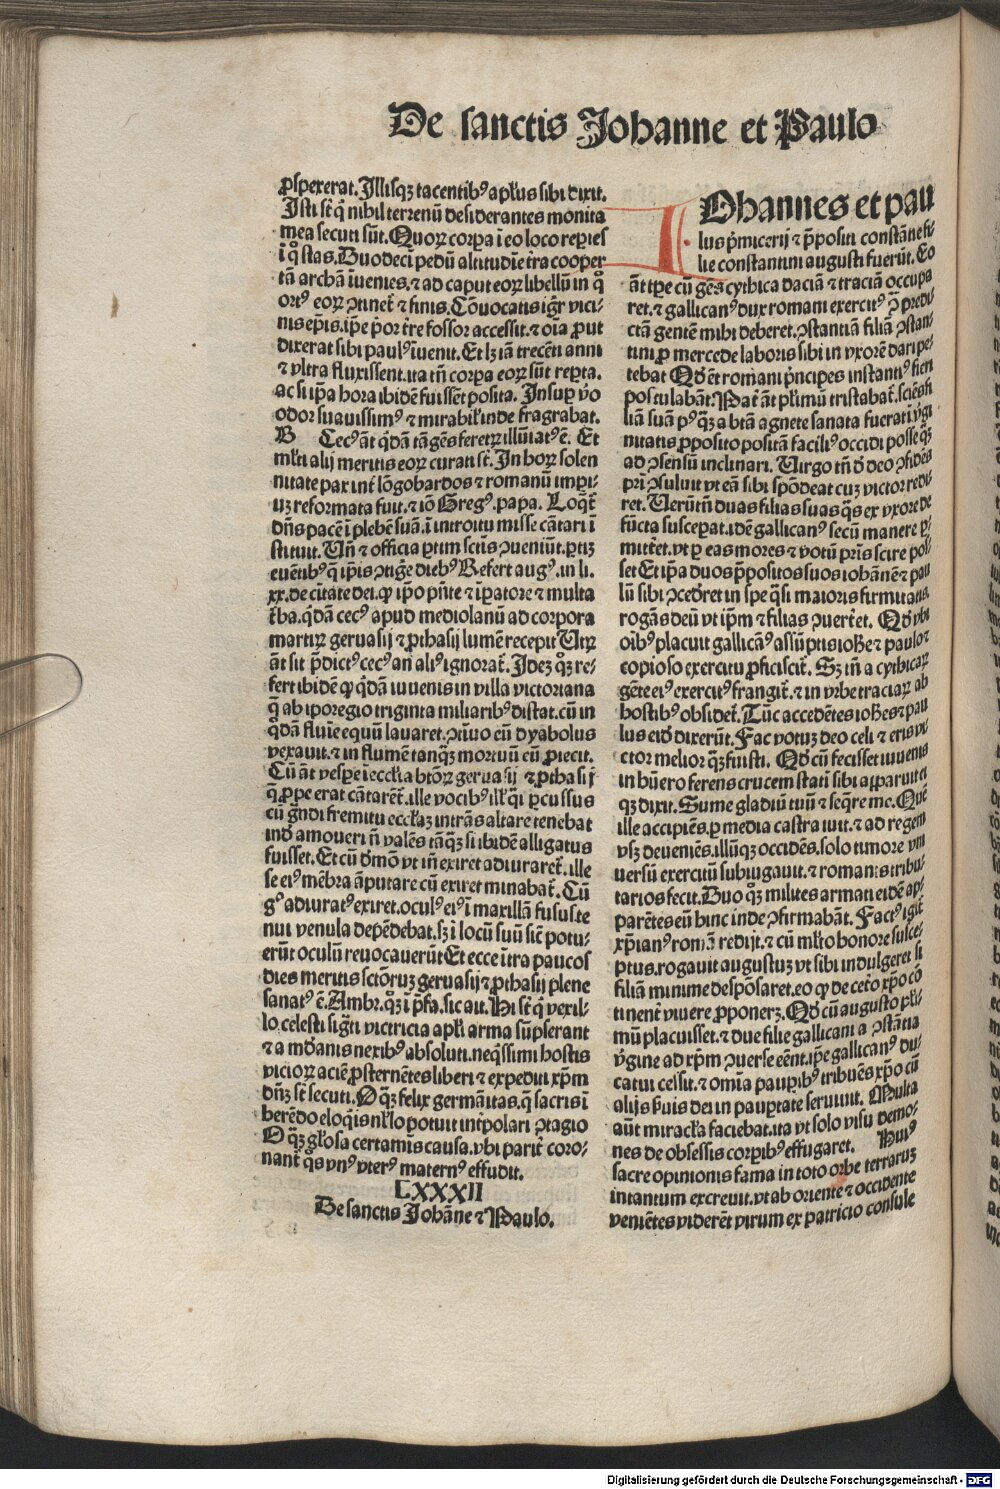 De sanctis Johanne et Paulo
ꝓspexerat. Illisqꝫ tacentibꝰ apl'us sibi dixit.
Isti st̄ q̄ nihil terrenū desiderantes monita
mea secuti sūt. Quoꝝ corꝑa ī eo loco reꝑies
ī q̊ stas. Duodecī pedū altitudīe t̄ra cooper
tā archā īuenies. ⁊ ad caput eoꝝ libellū in q̊
ortꝰ eoꝝ ↄtinet̄ ⁊ finis. Cōuocatis igr̄ vici-
nis ep̄is. ip̄e p̄or t̄re fossor accessit. ⁊ oīa ꝓut
dixerat sibi paulꝰ īuenit. Et lꝫ iā trecēti anni
⁊ vltra fluxissent. ita tn̄ corꝑa eoꝝ sūt reꝑta.
ac si ip̄a hora ibidē fuissēt posita. Insuꝑ v̊o
odor suauissimꝰ ⁊ mirabil' inde fragrabat.
B Cecꝰ āt q̄dā tāgēs feretꝝ illūīatꝰ ē. Et
ml'ti alij meritis eoꝝ curati st̄. In hoꝝ solen
nitate pax int̄ lōgobardos ⁊ romanū imꝑi-
uꝫ reformata fuit. ⁊ iō Gregꝰ. papa. Loq̄t̄
dn̄s pacē ī plebē suā. ī introitu misse cātari ī
stituit. Un̄ ⁊ officia ꝑtim sc̄is ↄueniūt. ꝑtiꝫ
euētibꝰ q̄ ip̄is ↄtiḡe diebꝰ Refert augꝰ. in li.
xx. de ciuitate dei. ꝙ ip̄o p̄nte ⁊ īꝑatore ⁊ multa
t̄ba. q̄dā cecꝰ apud mediolanū ad corpora
martiꝝ geruasij ⁊ ꝓthasij lumē recepit Utꝝ
āt sit p̄dictꝰ cecꝰ an aliꝰ ignorat̄. Ideꝫ qꝫ re-
fert ibidē ꝙ q̄dā iuuenis in villa victoriana
q̄ ab iporegio triginta miliaribꝰ distat. cū in
q̄dā fluīe equū lauaret. ↄtīuo eū dyabolus
vexauit. ⁊ in flumē tanqꝫ mortuū eū ꝓiecit.
Cū āt vesꝑe ī eccl'ia btōꝝ geruasij ⁊ ꝓthasij
q̄ ꝓpe erat cātaret̄. ille vocibꝰ ill' q̄i ꝑcussus
cū gn̄di fremitu eccl'iaꝫ intrās altare tenebat
ind̄ amoueri n̄ valēs tāqꝫ si ibidē alligatus
fuisset. Et cū d̄mō vt in̄ exiret adiuraret̄. ille
se eiꝰ mēbra āputare cū exiret minabat̄. Cū
g̊ adiuratꝰ exiret. oculꝰ eiꝰ ī maxillā fusus te
nui venula depēdebat. sꝫ ī locū suū sic̄ potu-
erūt oculū reuocauerūt Et ecce īt̄ra paucos
dies meritis sc̄toruꝫ geruasij ⁊ ꝓthasij plene
sanatꝰ ē. Ambr. qꝫ ī p̄fa. sic ait. Hi st̄ q̄ vexil-
lo celesti siḡti victricia apl'i arma sūpserant
⁊ a mūdanis nexibꝰ absoluti. neq̄ssimi hostis
vicioꝝ aciē ꝓsternētes liberi ⁊ expediti xp̄m
dn̄ꝫ st̄ secuti. O qꝫ felix germāitas. q̄ sacris ī
herēdo eloq̄is nl'lo potuit int̄polari ↄtagio
O qꝫ gl'iosa certamīs causa. vbi parit̄ coro-
nant̄ q̊s vnꝰ vterꝰ maternꝰ effudit.
LXXXII
De sanctis Johāne ⁊ Paulo.
IOhannes et pau
lus p̄micerij ⁊ p̄positi constāne fi-
lie constantini augusti fuerūt. Eo
āt tꝑe cū gēs cythica daciā ⁊ traciā occupa
ret. ⁊ gallicanꝰ dux romani exercitꝰ ↄ̄ p̄di-
ctā gentē mihi deberet. ↄstantiā filiā ↄstan-
tini ꝓ mercede laboris sibi in vxorē dari pe-
tebat Qd̄ ēt romani p̄ncipes instantiꝰ fieri
postulabāt. Pat̄ āt pl'imū tristabat̄. sciēs fi
liā suā pꝰqꝫ a btā agnete sanata fuerat ī v̄gi
nitatis ꝓposito positā faciliꝰ occidi posse qꝫ
ad ↄsensū inclinari. Uirgo tn̄ d̄ deo ↄfidēs
pr̄i ↄsuluit vt eā sibi spōdeat cuꝫ victor redi-
ret. Uerūtn̄ duas filias suas q̊s ex vxore de
fūcta susceꝑat. idē gallicanꝰ secū manere ꝑ-
mitt̄et. vt ꝑ eas mores ⁊ votū pr̄is scire pos-
set Et ip̄a duos p̄positos suos iohānē ⁊ pau
lū sibi ↄced̄ret in spe q̄si maioris firmitatis.
rogās deū vt ip̄m ⁊ filias ↄuert̄et. Qd̄ vbi
oībꝰ placuit gallicāꝰ assūptis ioh̄e ⁊ paulo ⁊
copioso exercitu ꝓficiscit̄. Sꝫ in̄ a cythicaꝝ
gēte eiꝰ exercitꝰ frangit̄. ⁊ in vrbe traciaꝝ ab
hostibꝰ obsidet̄. Tūc accedētes ioh̄es ⁊ pau
lus eid̄ dixerūt. Fac votuꝫ deo celi ⁊ eris vi
ctor melior qꝫ fuisti. Qd̄ cū fecisset iuuenis
in hūero ferens crucem stati sibi apparuit ei
qꝫ dixit. Sume gladiū tuū ⁊ seq̄re me. Quē
ille accipiēs. ꝑ media castra iuit. ⁊ ad regem
vsqꝫ deueniēs. illūqꝫ occidēs. solo timore vni
uersū exercitū subiugauit. ⁊ romanis tribu-
tarios fecit. Duo qꝫ milites armati eidē ap-
parētes eū hinc inde ↄfirmabāt. Factꝰ igit̄
xp̄ianꝰ romā redijt. ⁊ cū ml'to honore susce-
ptus. rogauit augustuꝫ vt sibi indulgeret si
filiā minime despōsaret. eo ꝙ de cet̄o xp̄o cō
tinent̄ viuere ꝓponerꝫ. Qd̄ cū augusto pl'i-
mū placuisset. ⁊ due filie gallicani a ↄstātia
v̄gine ad xp̄m ↄuerse eēnt. ip̄e gallicanꝰ du-
catui celsit. ⁊ omīa pauꝑibꝰ tribuēs xp̄o cū
alijs ẜuis dei in pauꝑtate seruiuit. Multa
aūt miracl'a faciebat. ita vt solo visu demo-
nes de obsessis corꝑibꝰ effugaret. Huiꝰ
sacre opinionis fama in toto orbe terraruꝫ
intantum excreuit. vt ab oriente ⁊ occidente
veniētes viderēt virum ex patricio consule
Digitalisierung gefördert durch die Deutsche Forschungsgemeinschaft - DFG